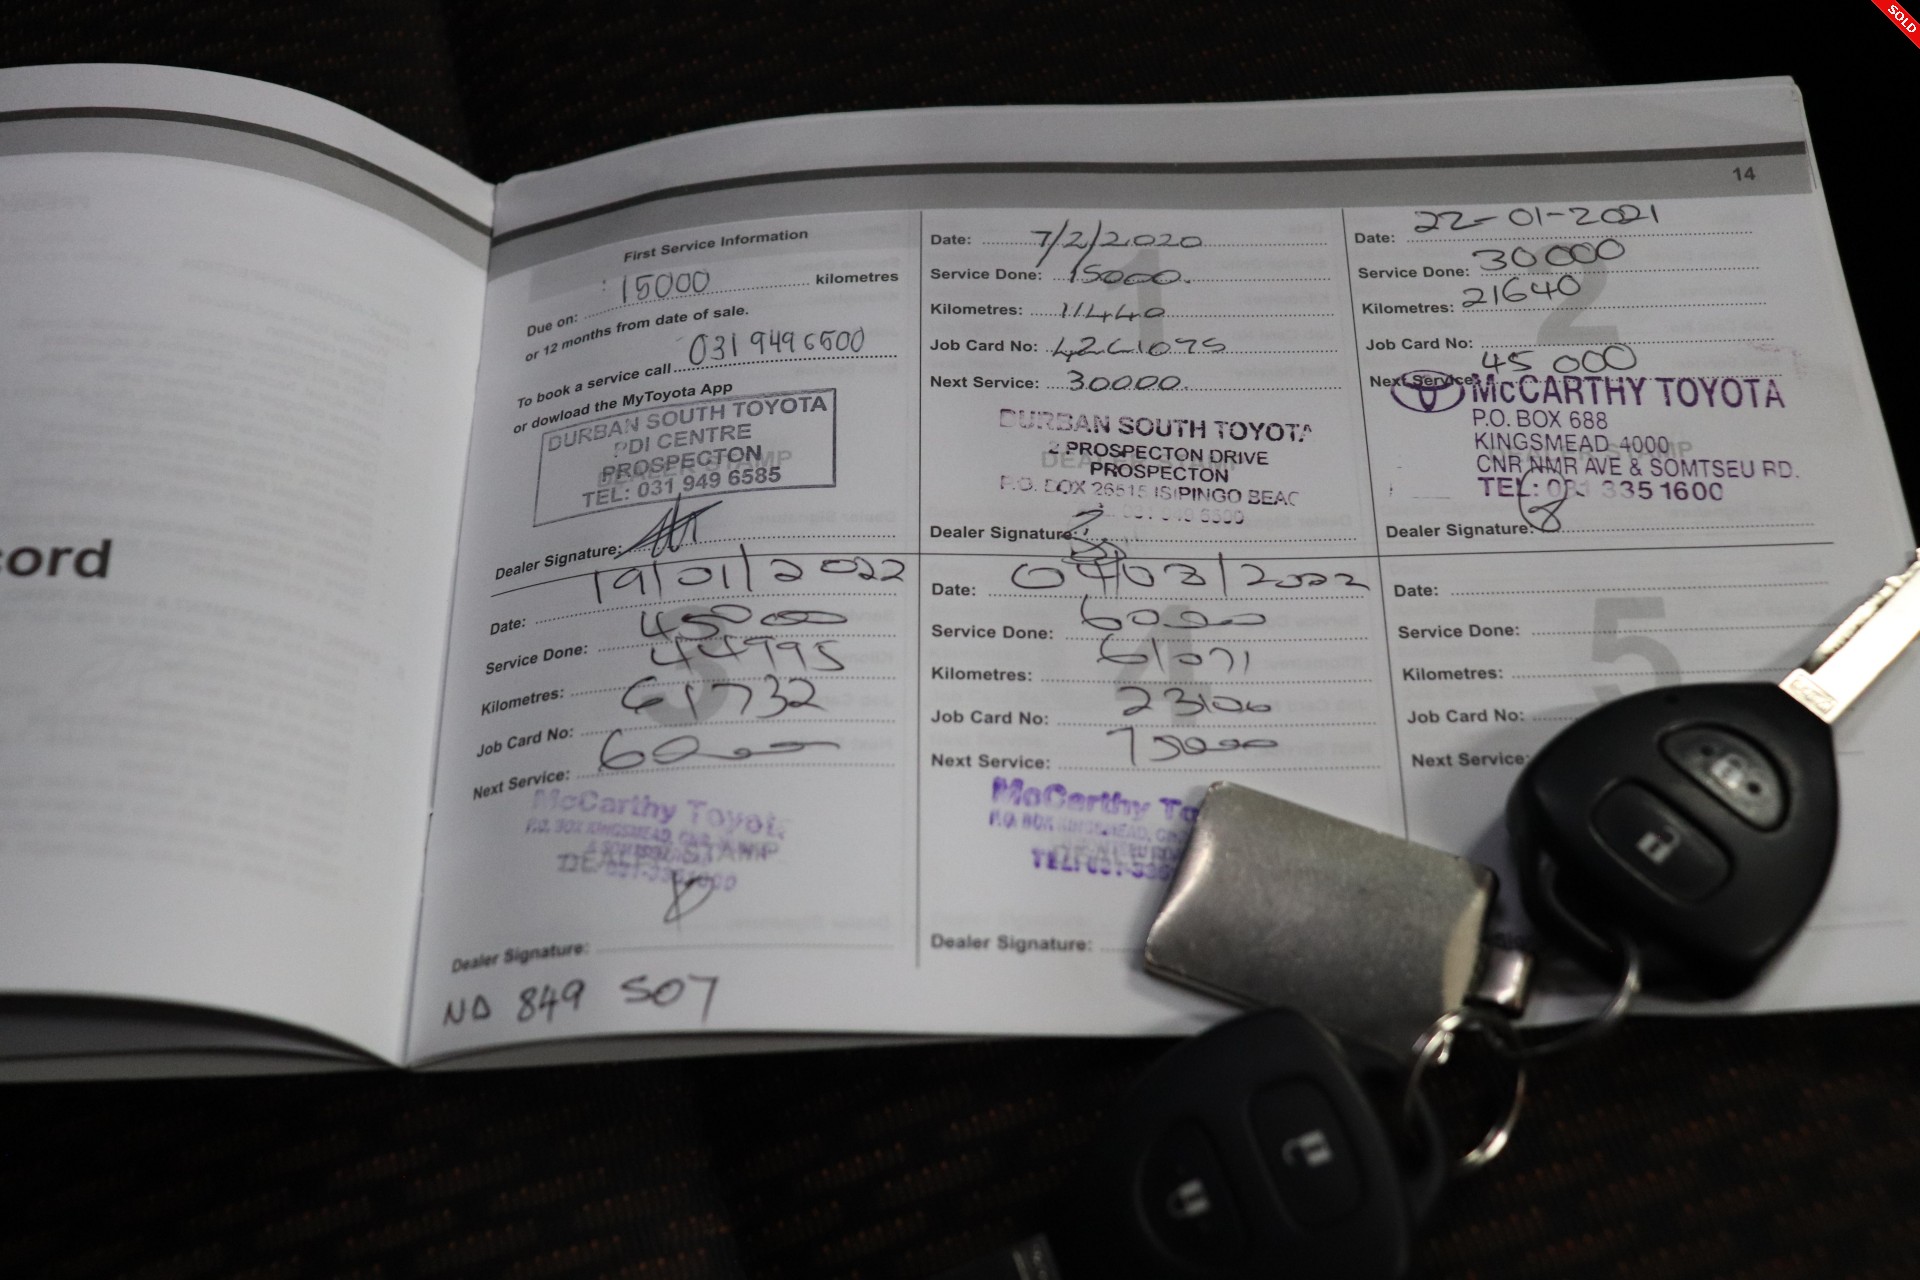 SOLD
14
cord
First Service Information
Due on: 15000 kilometres
or 12 months from date of sale.
To book a service call 031 949 6500
or dowload the MyToyota App
DURBAN SOUTH TOYOTA
PDI CENTRE
PROSPECTON
DEALER STAMP
TEL: 031 949 6585
Dealer Signature:
1
Date: 7/2/2020
Service Done: 15000.
Kilometres: 11440
Job Card No:
Next Service: 30000.
DURBAN SOUTH TOYOTA
2 PROSPECTON DRIVE
PROSPECTON
P.O. BOX 26515 ISIPINGO BEAC
Dealer Signature:
2
Date: 22-01-2021
Service Done: 30000
Kilometres: 21640
Job Card No:
Next Service: 45 000
McCARTHY TOYOTA
P.O. BOX 688
KINGSMEAD 4000
CNR NMR AVE & SOMTSEU RD.
TEL: 031 335 1600
Dealer Signature:
3
Date: 19/01/2022
Service Done: 45000
Kilometres: 44995
Job Card No: 61732
Next Service: 60000
McCarthy Toyota
DEALER STAMP
Dealer Signature:
ND 849 507
4
Date: 04/03/2022
Service Done: 60000
Kilometres: 61071
Job Card No: 23106
Next Service: 75000
McCarthy To
Dealer Signature:
5
Date:
Service Done:
Kilometres:
Job Card No:
Next Service: